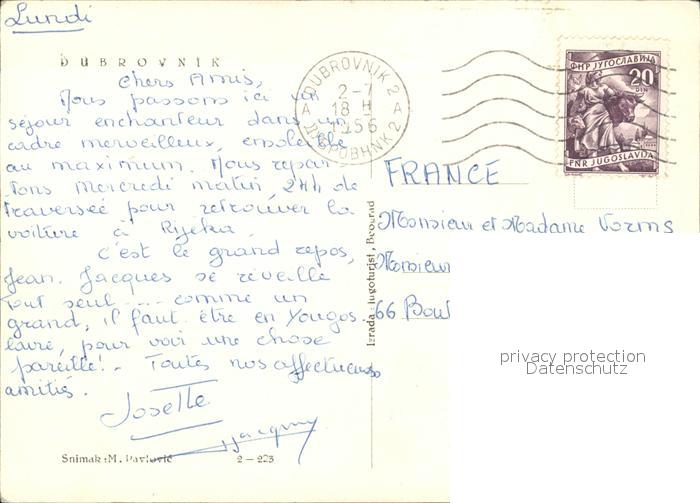 Lundi
DUBROVNIK
Chers Amis,
Nous passons ici un
séjour enchanteur dans un
cadre merveilleux, ensoleillé
au maximum. Nous repar-
tons Mercredi matin, 24h de
traversée pour retrouver la
voiture à Rijeka.
C'est le grand repos,
Jean-Jacques se réveille
tout seul .... comme un
grand, il faut être en Yougos-
lavie, pour voir une chose
pareille! - Toutes nos affectueuses
amitiés.
Josette
Jacques
Snimak: M. Pavlović
2-223
Izrada: Jugoturist, Beograd
DUBROVNIK 2
2-7
A 18 A
56
ДУБРОВНИК 2
ФНР ЈУГОСЛАВИЈА
20
DIN
FNR JUGOSLAVIJA
FRANCE
Monsieur et Madame Vorms
Monsieur
66 Boul
privacy protection
Datenschutz